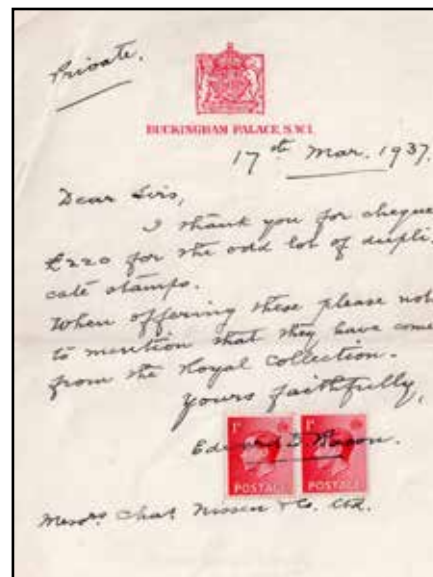 Private.
BUCKINGHAM PALACE, S.W.1.
17th Mar. 1937.
Dear Sirs,
I thank you for cheque
£220 for the odd lot of dupli-
cate stamps.
When offering these please not
to mention that they have come
from the Royal Collection.
Yours faithfully,
Edward D. Bacon.
1D 1D
POSTAGE POSTAGE
Messrs Chas Nissen & Co. Ltd.